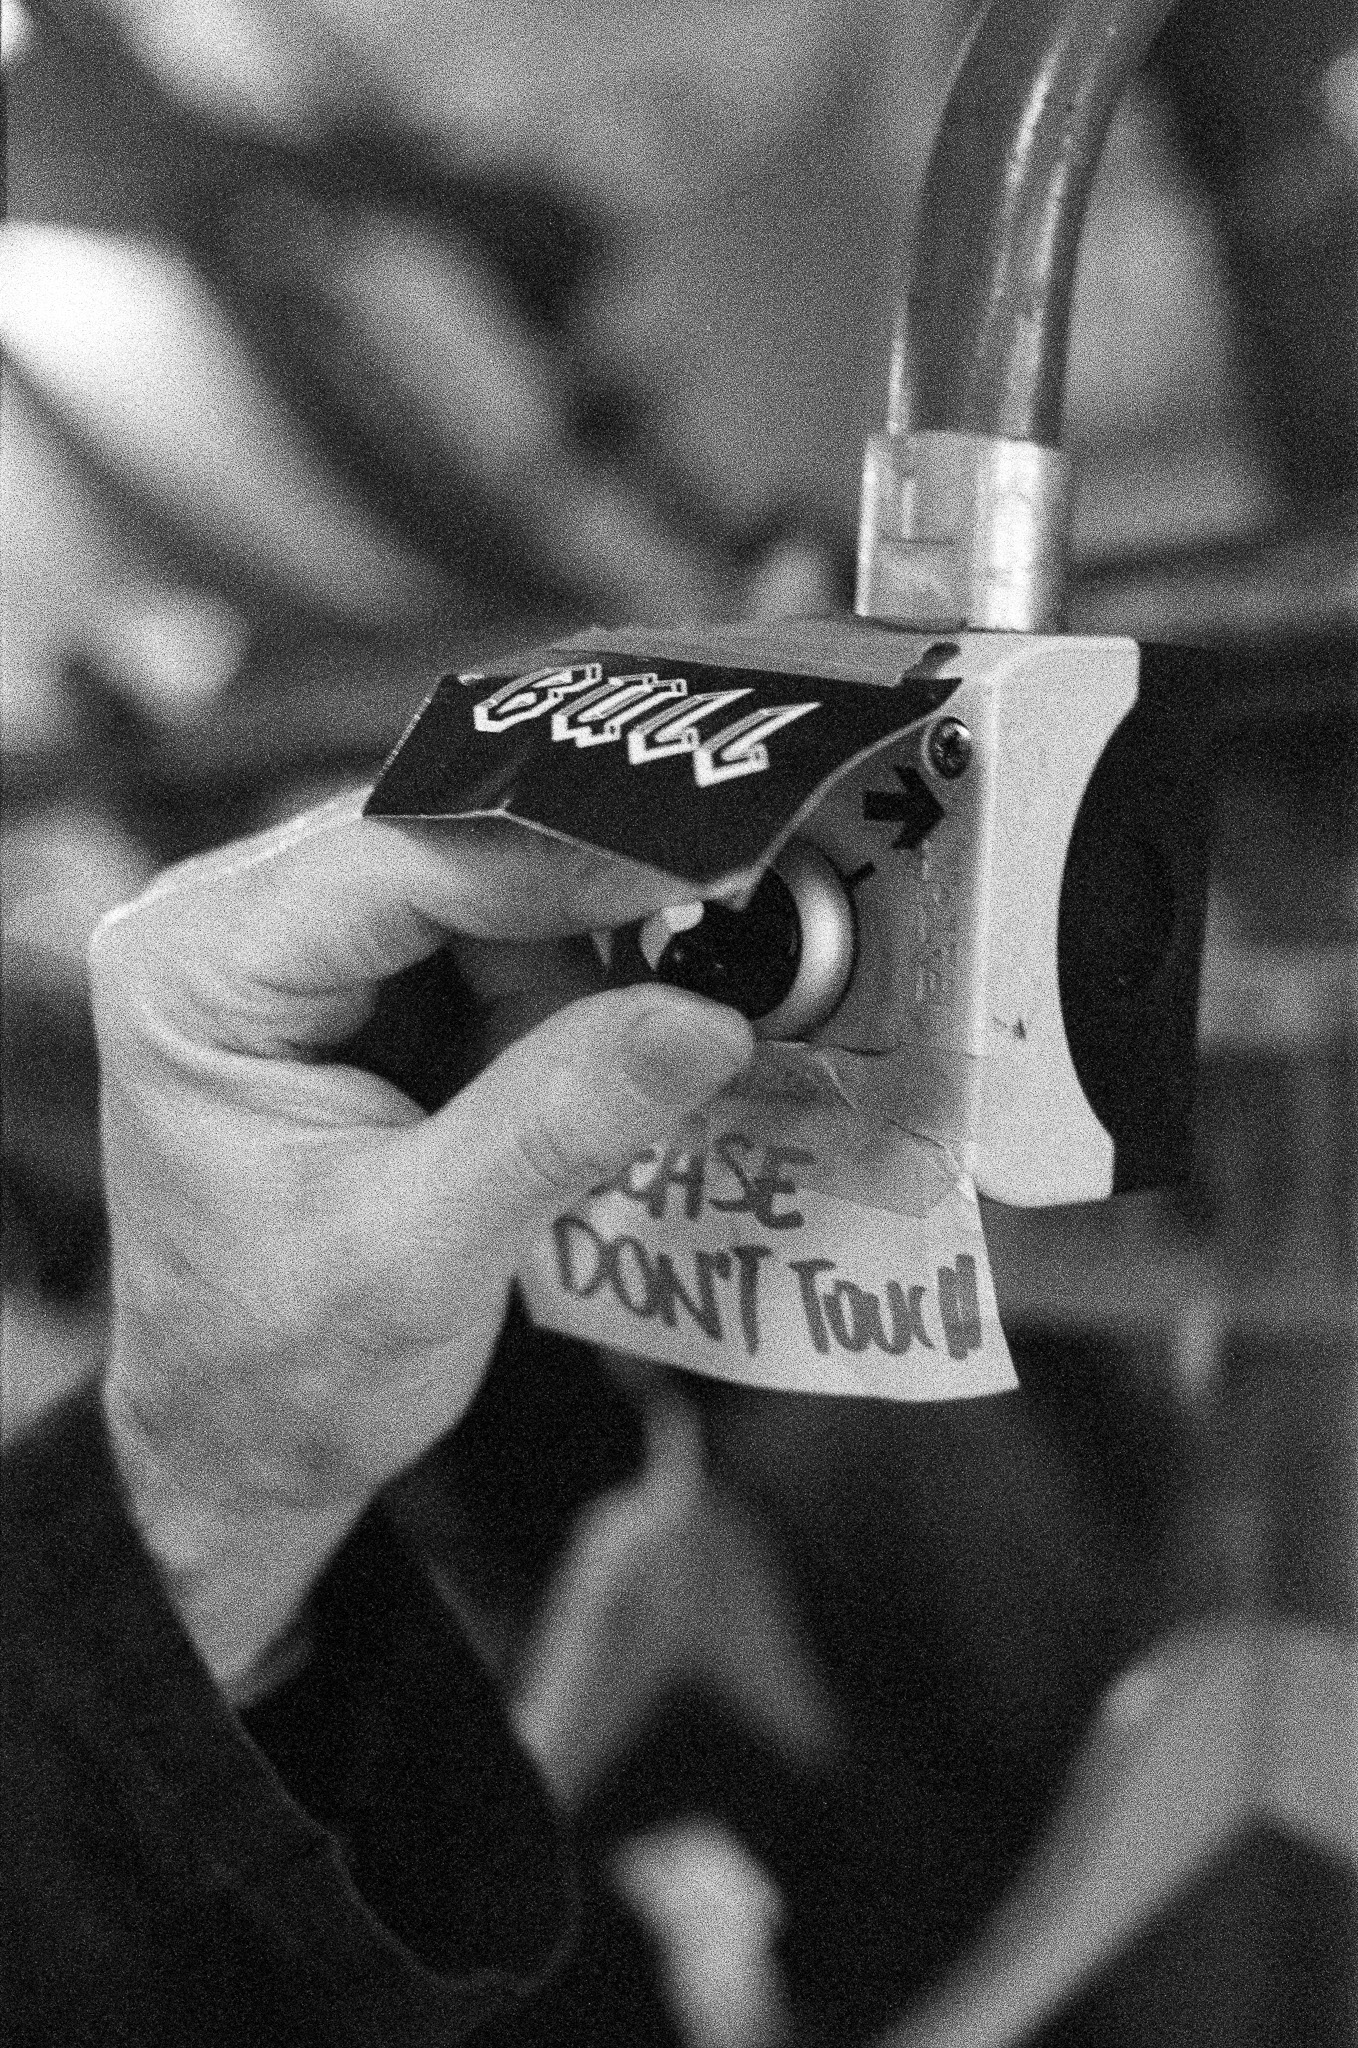 BULL
EASE
DON'T TOUCH